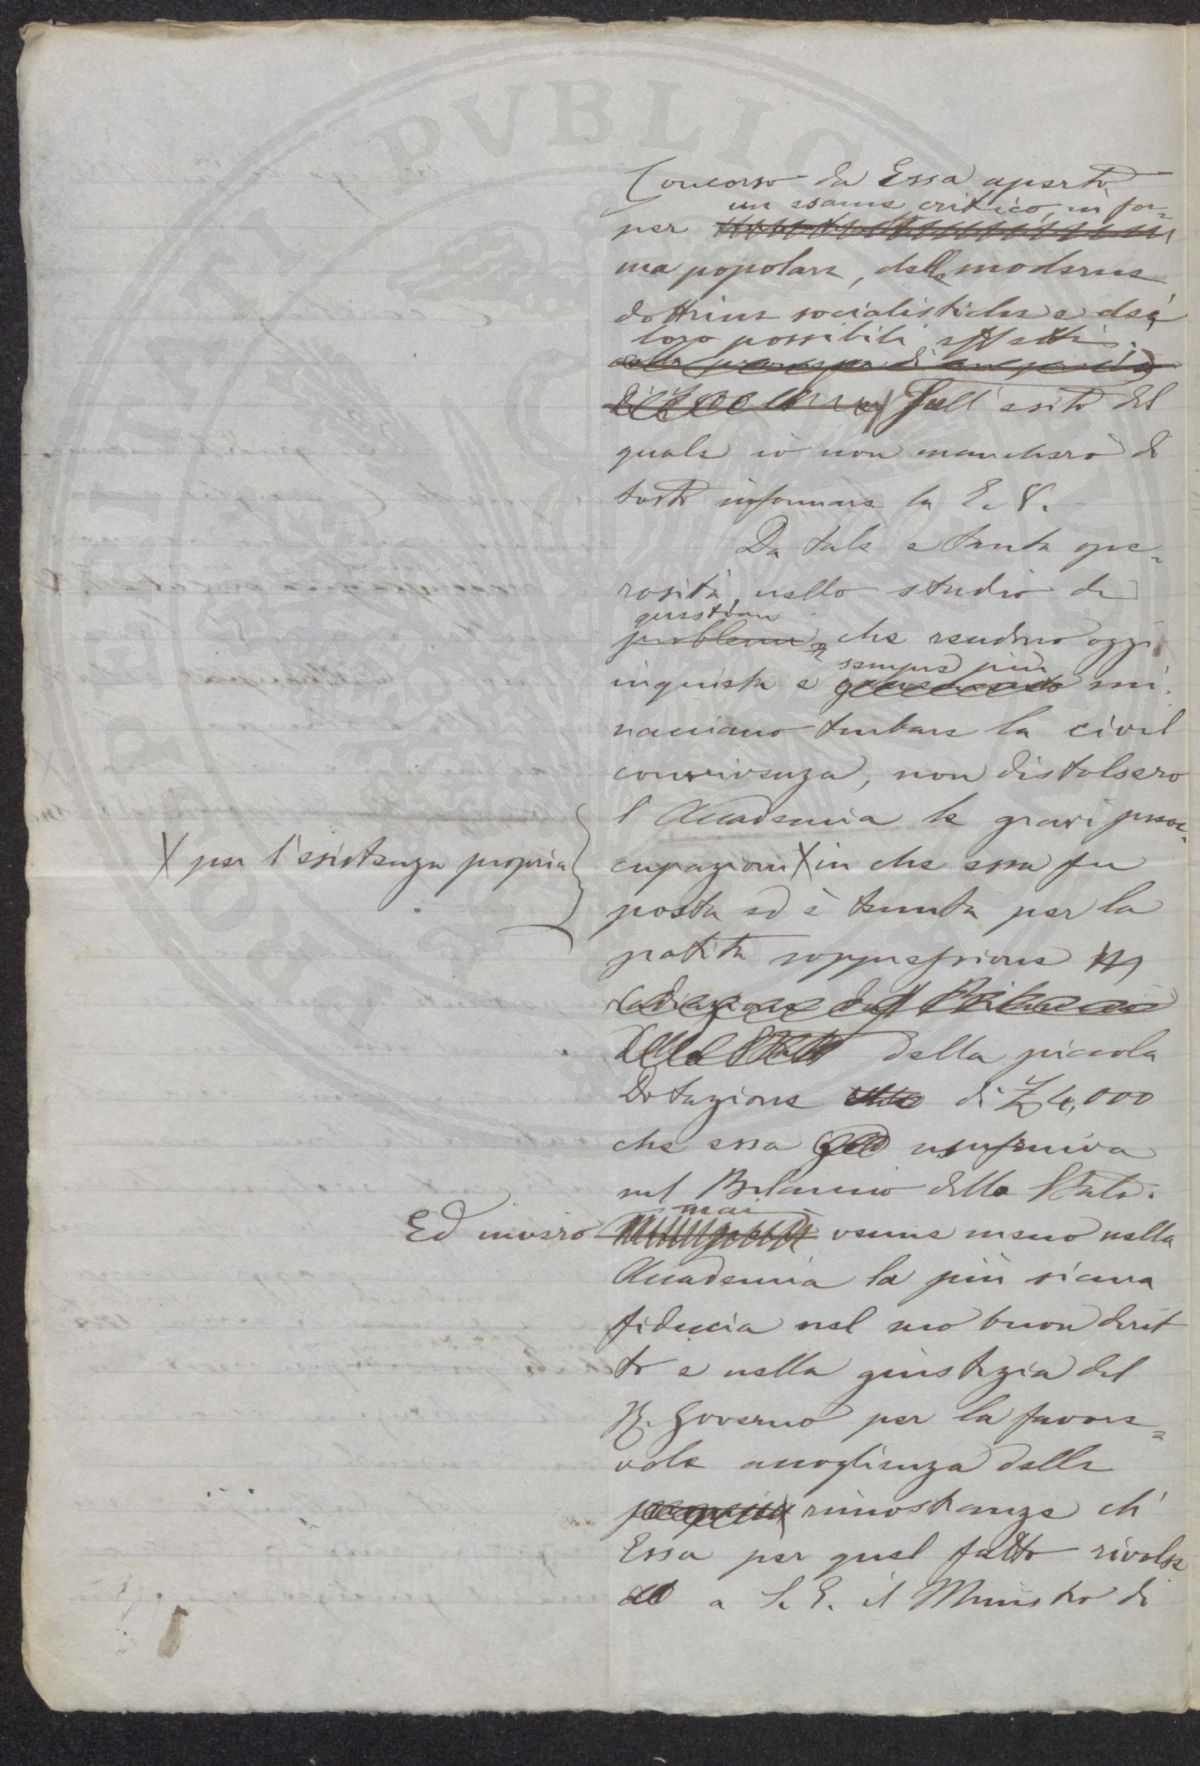 Concorso da Essa aperto
un esame critico, in for=
per
ma popolare, delle moderne
dottrine socialistiche e dei
loro possibili effetti.
Sull'esito del
quale io non mancherò di
tosto informare la E. V.
Da tale e tanta ope=
rosità nello studio di
questioni
problemi, che rendono oggi
sempre più
inquieta e mi=
nacciano turbare la civil
convivenza, non distolsero
l'Accademia le gravi preoc=
X per l'esistenza propria
cupazioni X in che essa fu
posta ed è tenuta per la
patita soppressione
della piccola
Dotazione di £ 4,000
che essa usufruiva
sul Bilancio dello Stato.
mai
Ed invero venne meno nella
Accademia la più sicura
fiducia nel suo buon dirit
to e nella giustizia del
R. Governo per la favore=
vole accoglienza delle
rimostranze ch'
Essa per quel fatto rivolse
a S. E. il Ministro di